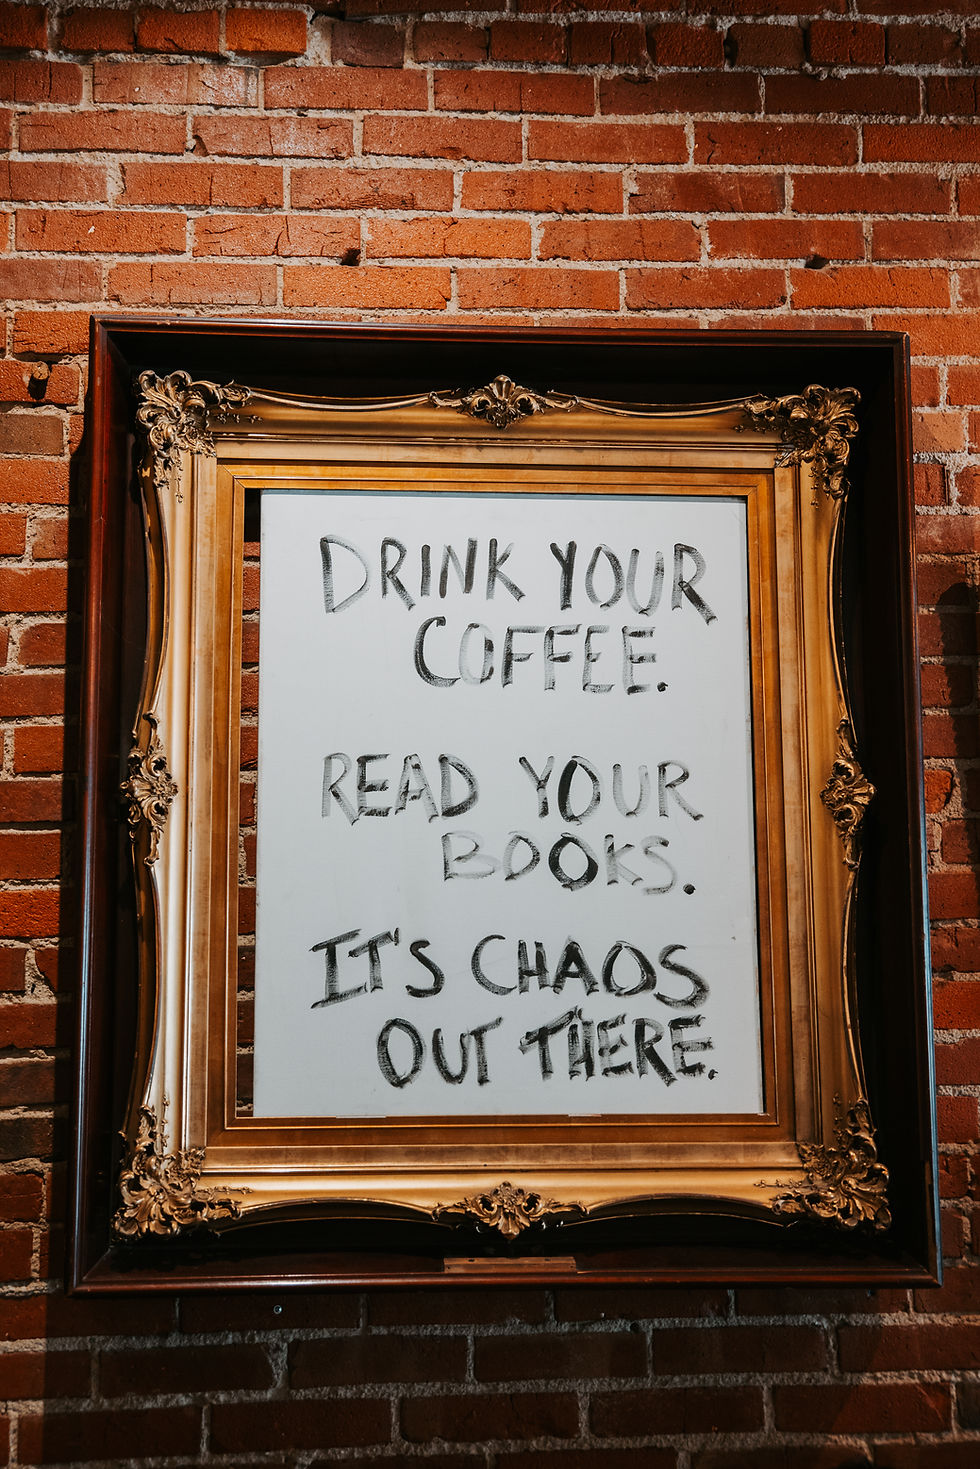 DRINK YOUR
COFFEE.
READ YOUR
BOOKS.
IT'S CHAOS
OUT THERE.